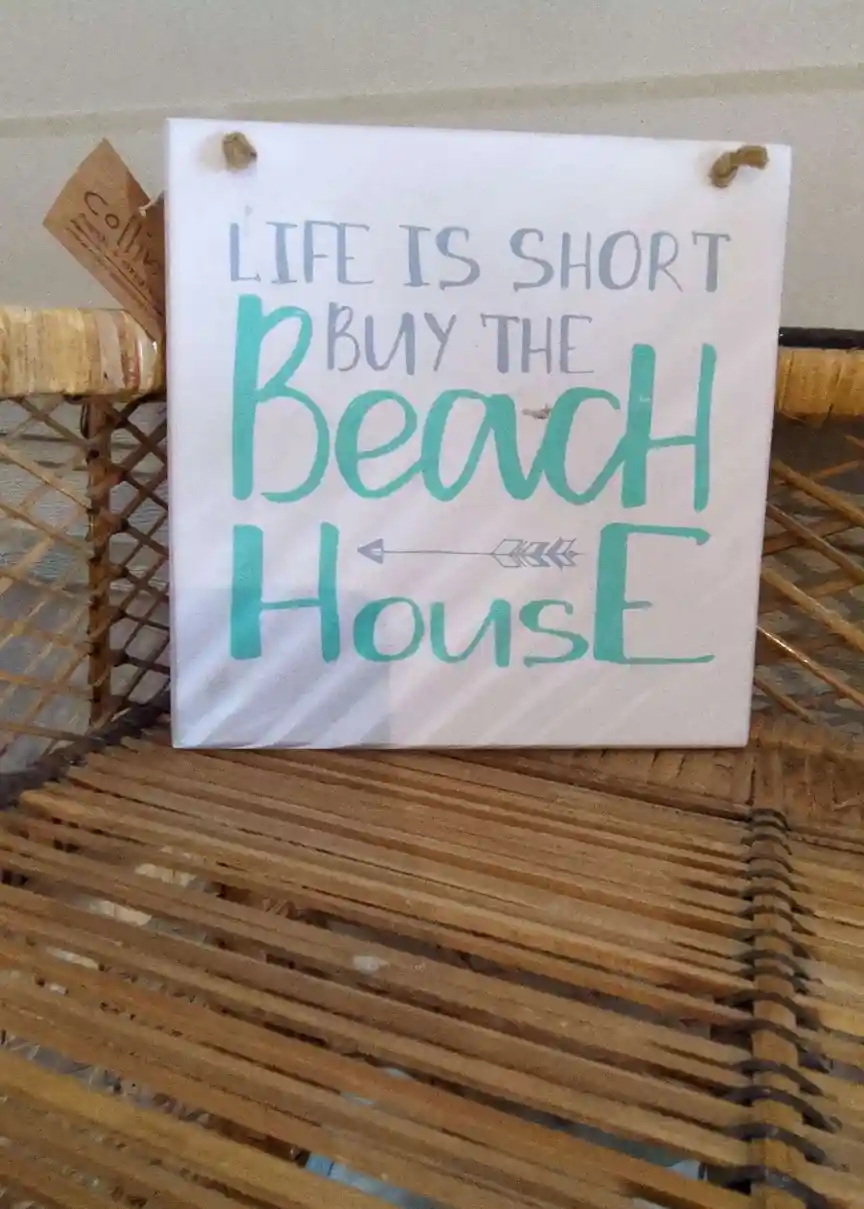 LIFE IS SHORT
BUY THE
BeacH
HousE